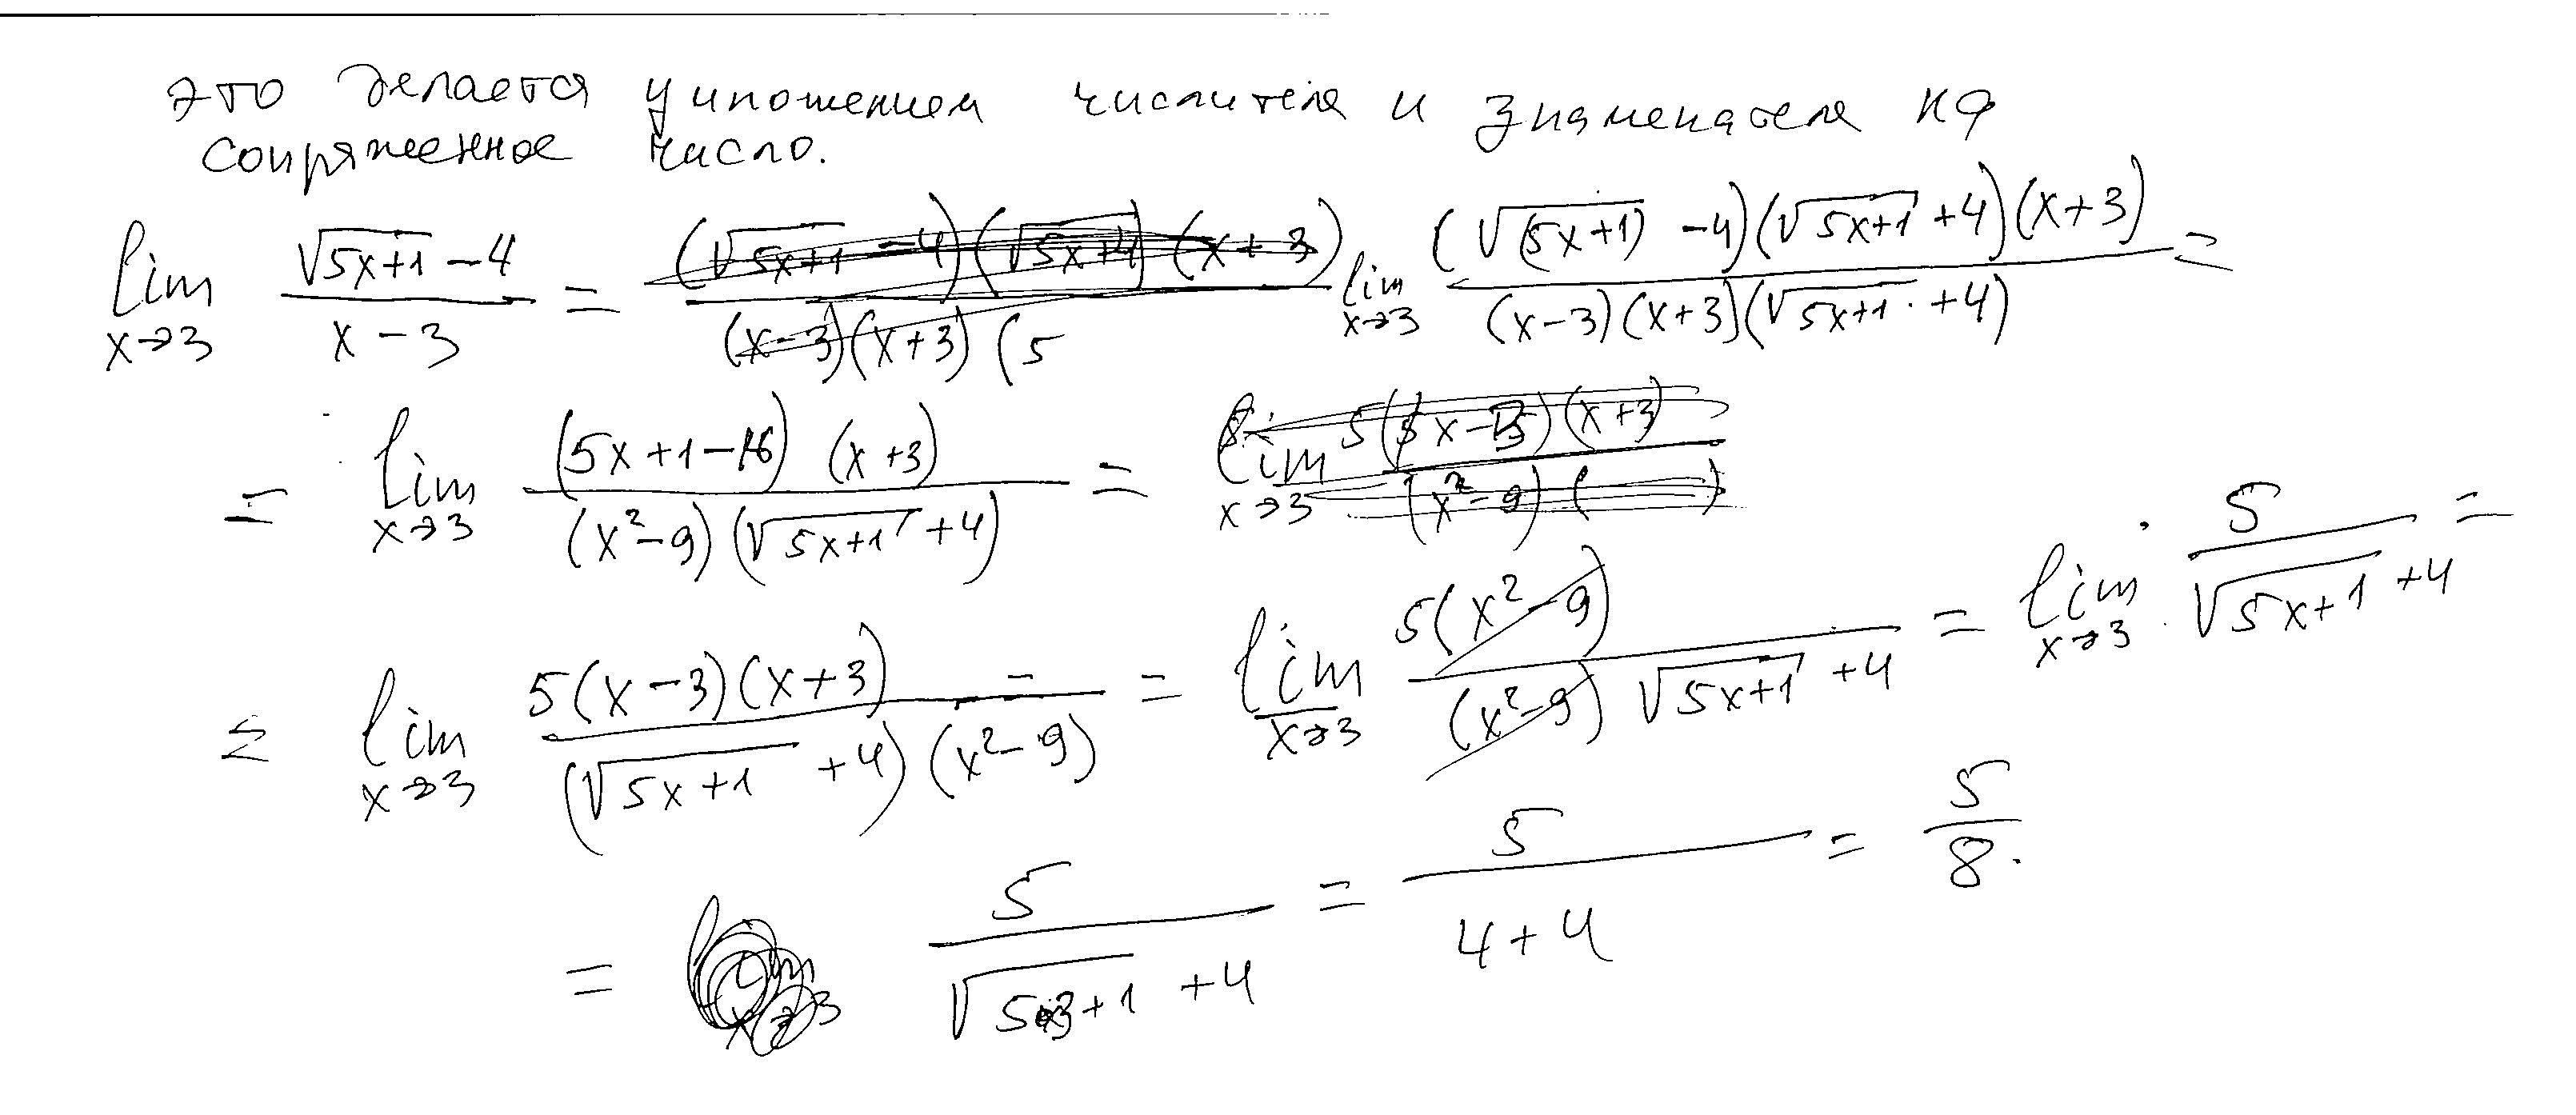 это делается умножением числителя и знаменателя на
сопряженное число.
lim x→3 (√(5x+1) - 4)/(x - 3) = lim x→3 ((√(5x+1) - 4)(√(5x+1) + 4)(x+3))/((x-3)(x+3)(√(5x+1) + 4)) =
= lim x→3 ((5x+1-16)(x+3))/((x²-9)(√(5x+1) + 4)) =
= lim x→3 (5(x-3)(x+3))/((√(5x+1) + 4)(x²-9)) = lim x→3 (5(x²-9))/((x²-9) √(5x+1) + 4) = lim x→3 5/(√(5x+1) + 4) =
= 5/(√(5·3+1) + 4) = 5/(4+4) = 5/8.